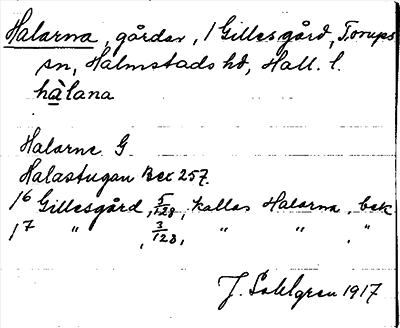 Halarna, gårdar, 1 Gillesgård, Torups
sn, Halmstads hd, Hall. l.
hàlana
Halarne G
Halastugan Bex 257.
1⁶ Gillesgård, 5/128, kallas Halarna, bek
1⁷ " , 3/128, " " , "
J. Sahlgren 1917